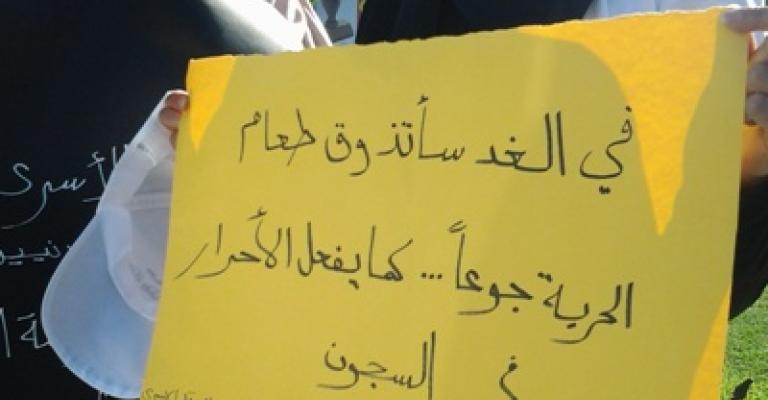 في الغد سأتذوق طعام
الحرية جوعاً... كما يفعل الأحرار
في السجون
الأسرى